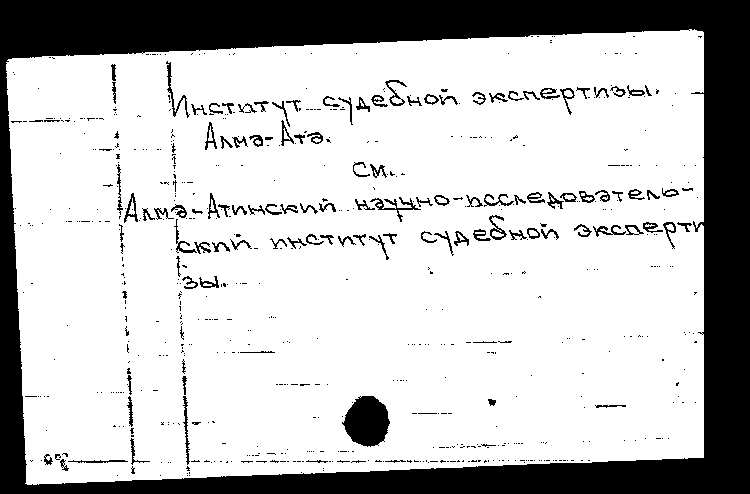 Институт судебной экспертизы.
Алма-Ата.
см.
Алма-Атинский научно-исследователь-
ский институт судебной эксперти
зы.